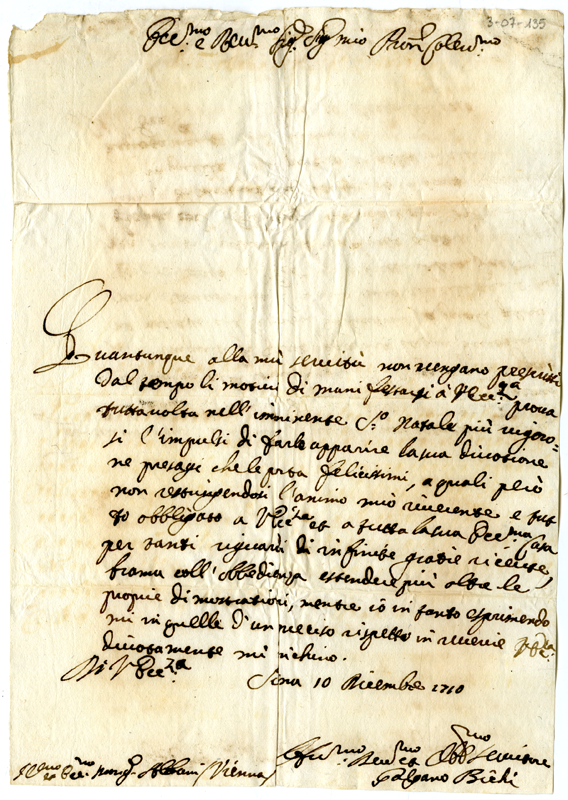 3-07-135
Ecc.mo e Rev.mo Sig.r Sig.r mio Pron Colen.mo
Quantunque alla mia servitù non vengano prescritti
dal tempo li motivi di manifestarsi à V. Ecc.za prova
tuttavolta nell'imminente S.to Natale più vigoro=
si l'impulsi di farle apparire la sua divotione
ne presagi che le porta felicissimi, a quali però
non restringendosi l'animo mio riverente e tut
to obbligato a V. Ecc.za et a tutta la sua Ecc.ma Casa
per tanti riguardi di infinite gratie ricevute,
brama coll'obbedienza estendere più oltre le
proprie dimostrationi, mentre io in tanto esprimendo
mi in quelle d'un preciso rispetto in riverire V. Ecc.za
divotamente mi inchino.
Di V. Ecc.za
Siena 10 Dicembre 1710
Rev.mo et Obb. Servitore
Galgano Bichi
Ill.mo et Ecc.mo Monsig.r Albani Vienna